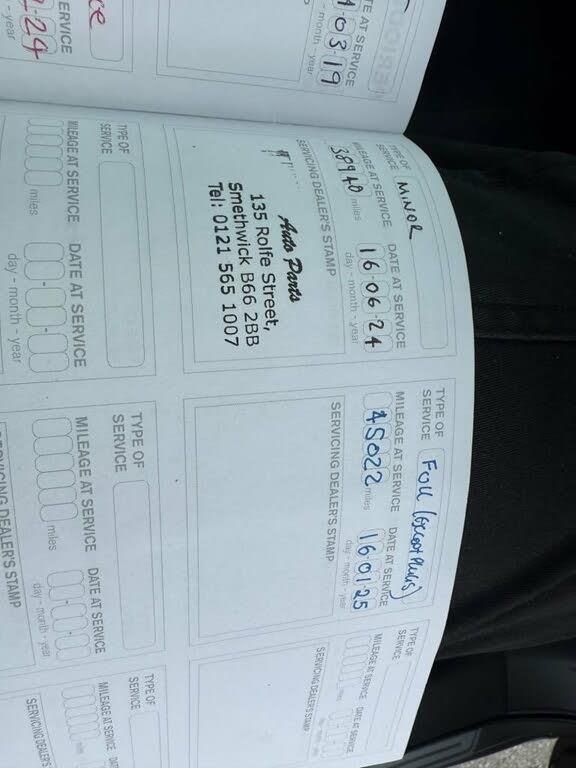 ERIOD
TE AT SERVICE
1·03·19
- month - year
ce
ERVICE
2·24
- year
TYPE OF
SERVICE MINOR
MILEAGE AT SERVICE DATE AT SERVICE
38940 miles 16·06·24
day - month - year
SERVICING DEALER'S STAMP
Auto Parts
135 Rolfe Street,
Smethwick B66 2BB
Tel: 0121 565 1007
TYPE OF
SERVICE FULL (except plugs)
MILEAGE AT SERVICE DATE AT SERVICE
45022 miles 16·01·25
day - month - year
SERVICING DEALER'S STAMP
TYPE OF
SERVICE
MILEAGE AT SERVICE DATE AT SERVICE
SERVICING DEALER'S STAMP
TYPE OF
SERVICE
MILEAGE AT SERVICE DATE AT SERVICE
miles
day - month - year
TYPE OF
SERVICE
MILEAGE AT SERVICE DATE AT SERVICE
miles
day - month - year
SERVICING DEALER'S STAMP
TYPE OF
SERVICE
MILEAGE AT SERVICE DATE
miles
SERVICING DEALER'S